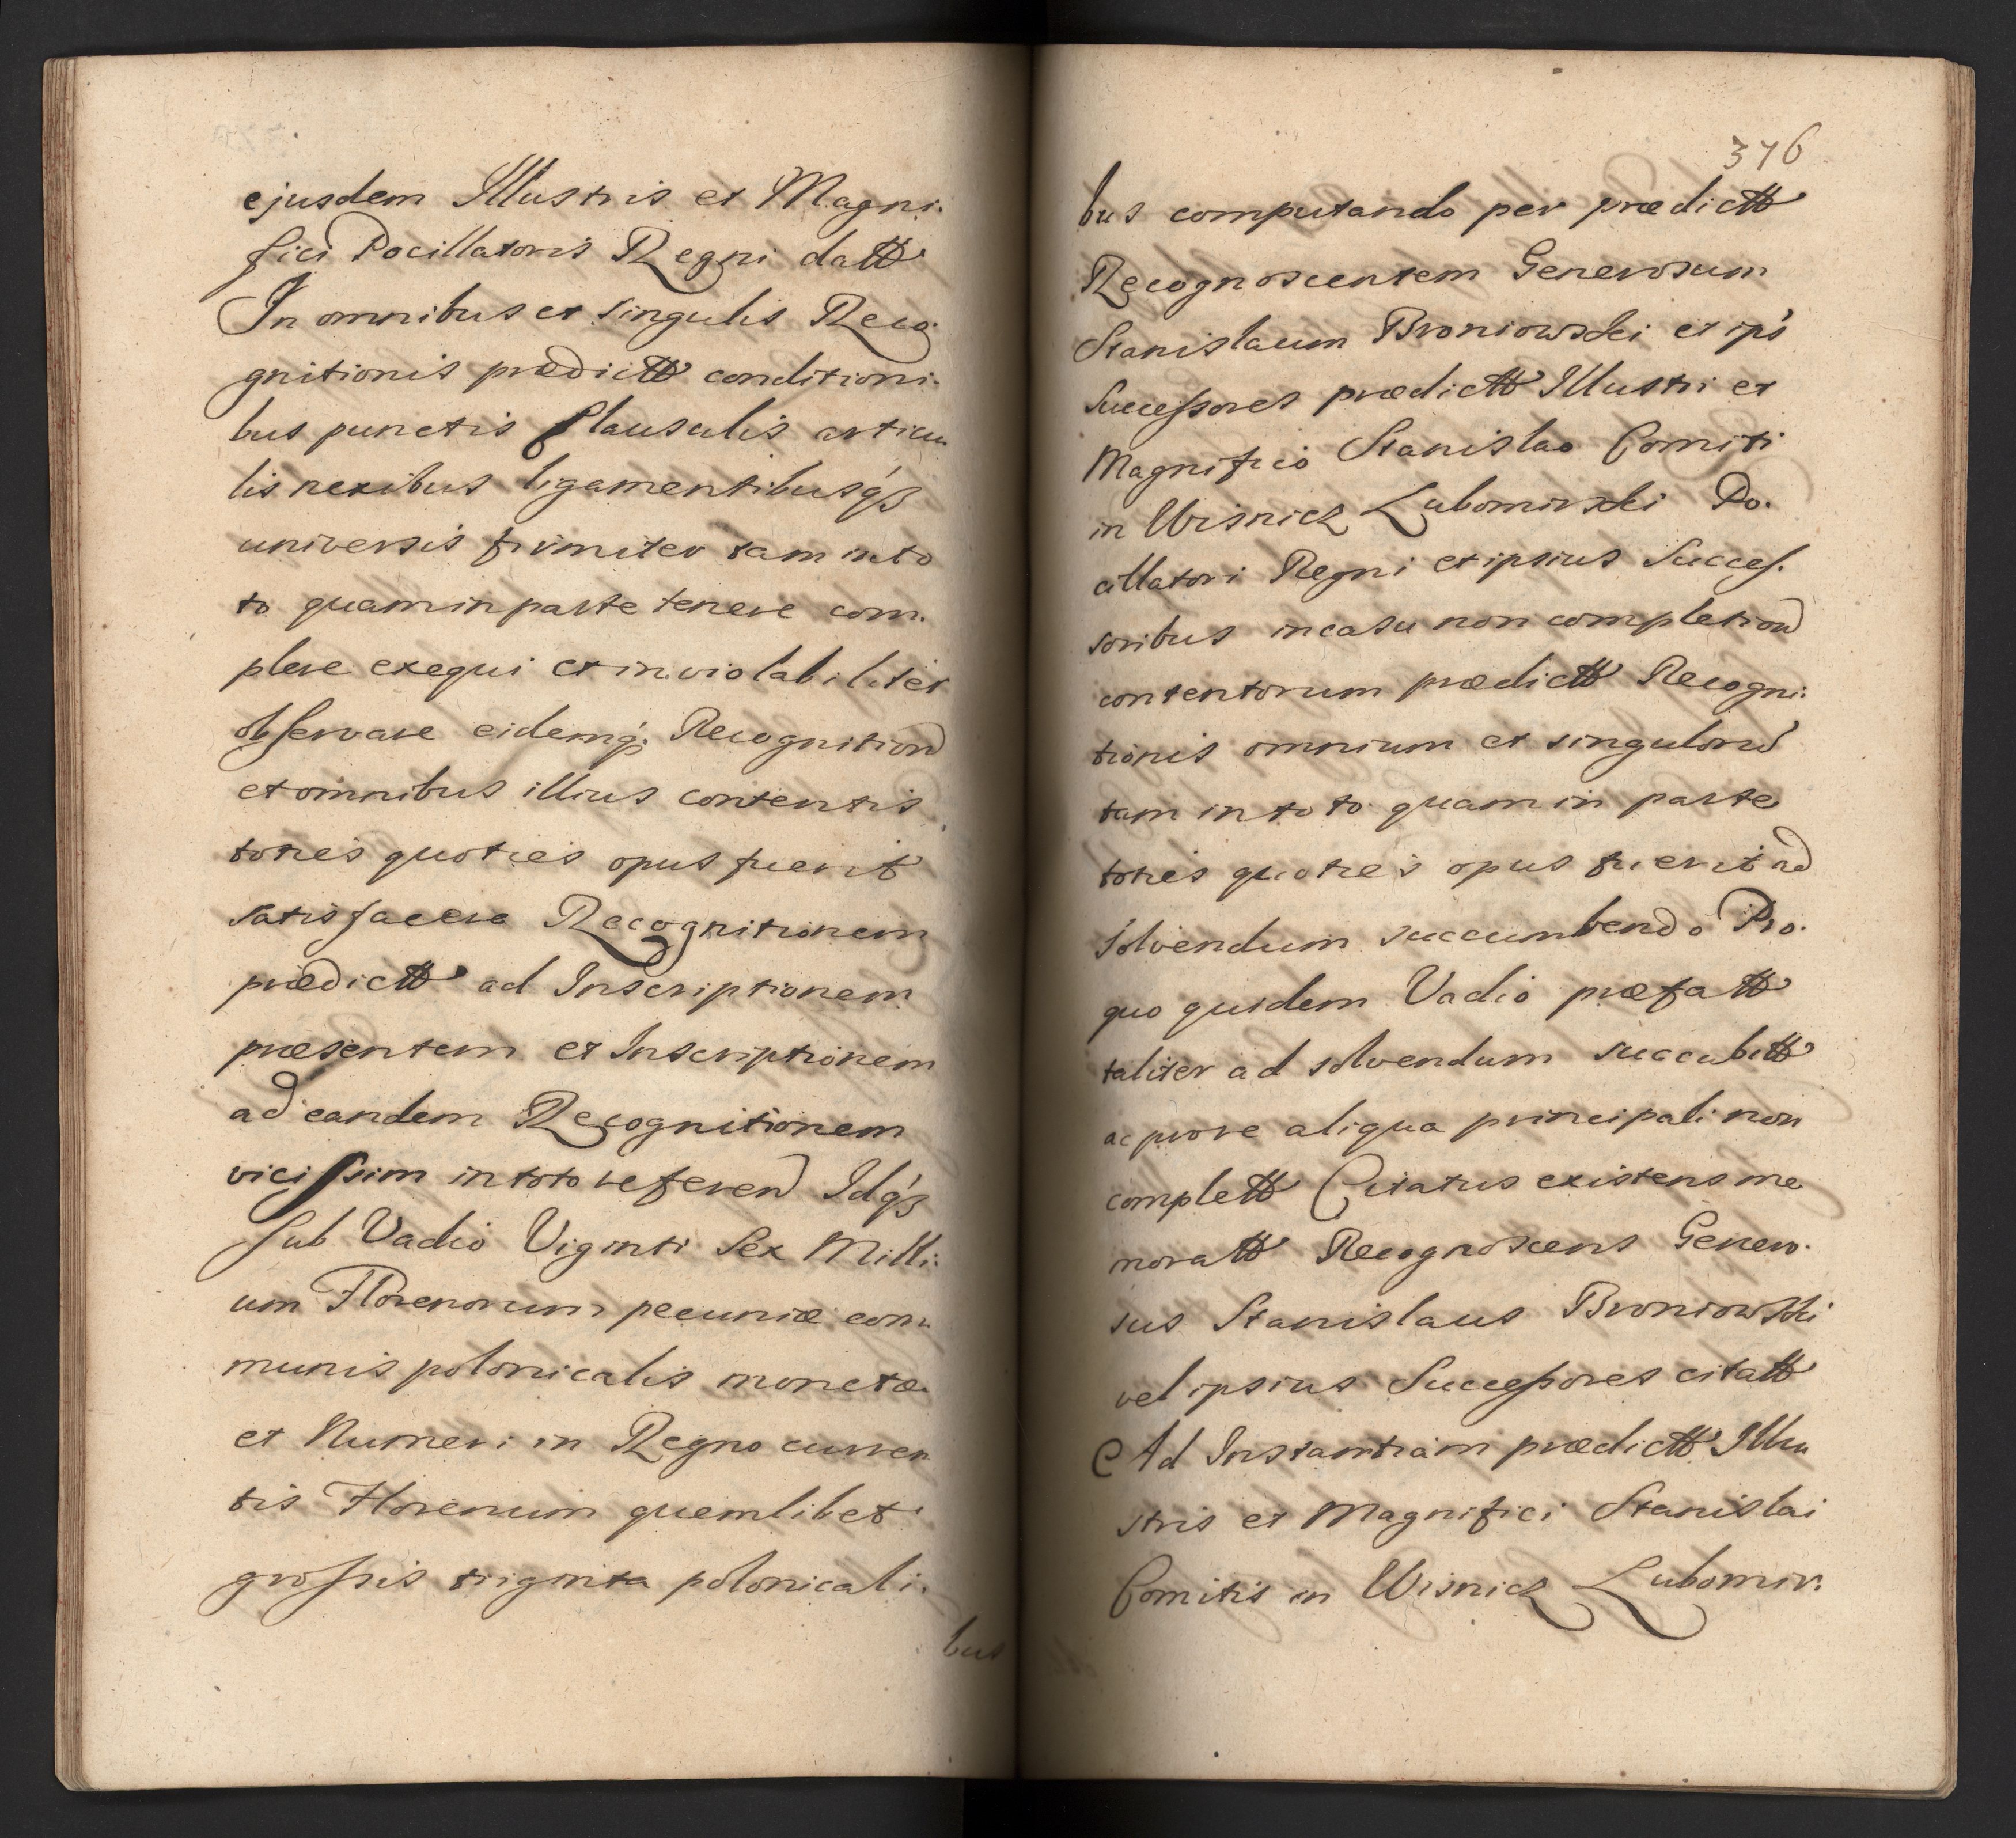 ejusdem Illustris et Magni:
fici Pocillatoris Regni datt
In omnibus et singulis Reco:
gnitionis prædictt conditioni:
bus punctis Clausulis articu
lis nexibus ligamentibusq́ꝫ
universis firmiter tam in to
to quam in parte tenere com:
plere exequi et inviolabiliter
observare eidemq́ꝫ Recognition
et omnibus illius contentis
toties quoties opus fuerit
satisfacere Recognitionem
prædictt ad Inscriptionem
præsentem et Inscriptionem
ad eandem Recognitionem
vicissim in toto referend Idq́ꝫ
sub Vadio Viginti Sex Milli:
um Florenorum pecuniæ com
munis polonicalis monetæ
et Numeri in Regno curren
tis Florenum quemlibet
grossis triginta polonicali:
bus
376
bus computando per prædictt
Recognoscentem Generosum
Stanislaum Broniowski et ips
Successores prædictt Illustri et
Magnifico Stanislao Comiti
in Wisnicz Lubomirski Po:
cillatori Regni et ipsius Succes:
soribus in casu non completion
contentorum prædictt Recogni:
tionis omnium et singulorum
tam in toto quam in parte
toties quoties opus fuerit ad
solvendum succumbendo Pro:
quo quidem Vadio præfatt
taliter ad solvendum succubitt
ac prore aliqua principali non
complett Citatus existens me
moratt Recognoscens Genero:
sus Stanislaus Broniowski
vel ipsius Successores citatt
Ad Instantiam prædictt Illu
stris et Magnifici Stanislai
Comitis in Wisnicz Lubomir: